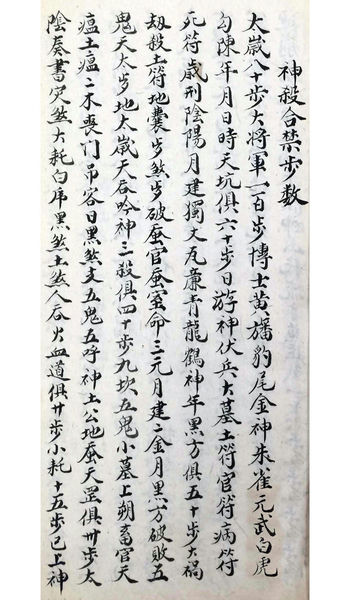 神殺合禁步数
太歲八十步大將軍一百步博士黃旛豹尾金神朱雀元武白虎
勾陳年月日時天坑俱六十步日游神伏兵大墓土符官符病符
死符歲刑陰陽月建獨火瓦廉青龍鶴神年黑方俱五十步大禍
劫殺土符地囊步煞步破蚕官蚕室命三元月建二金月黑方破敗五
鬼天太歩地太歲天吞吟神三殺俱四十步九坎五鬼小墓上朔畜官天
瘟土瘟二木喪门吊客日黑煞支五鬼五呼神土公地蚕天罡俱卅步太
陰奏書灾煞大耗白虎黑煞土煞人吞火血道俱廿步小耗十五步已上神